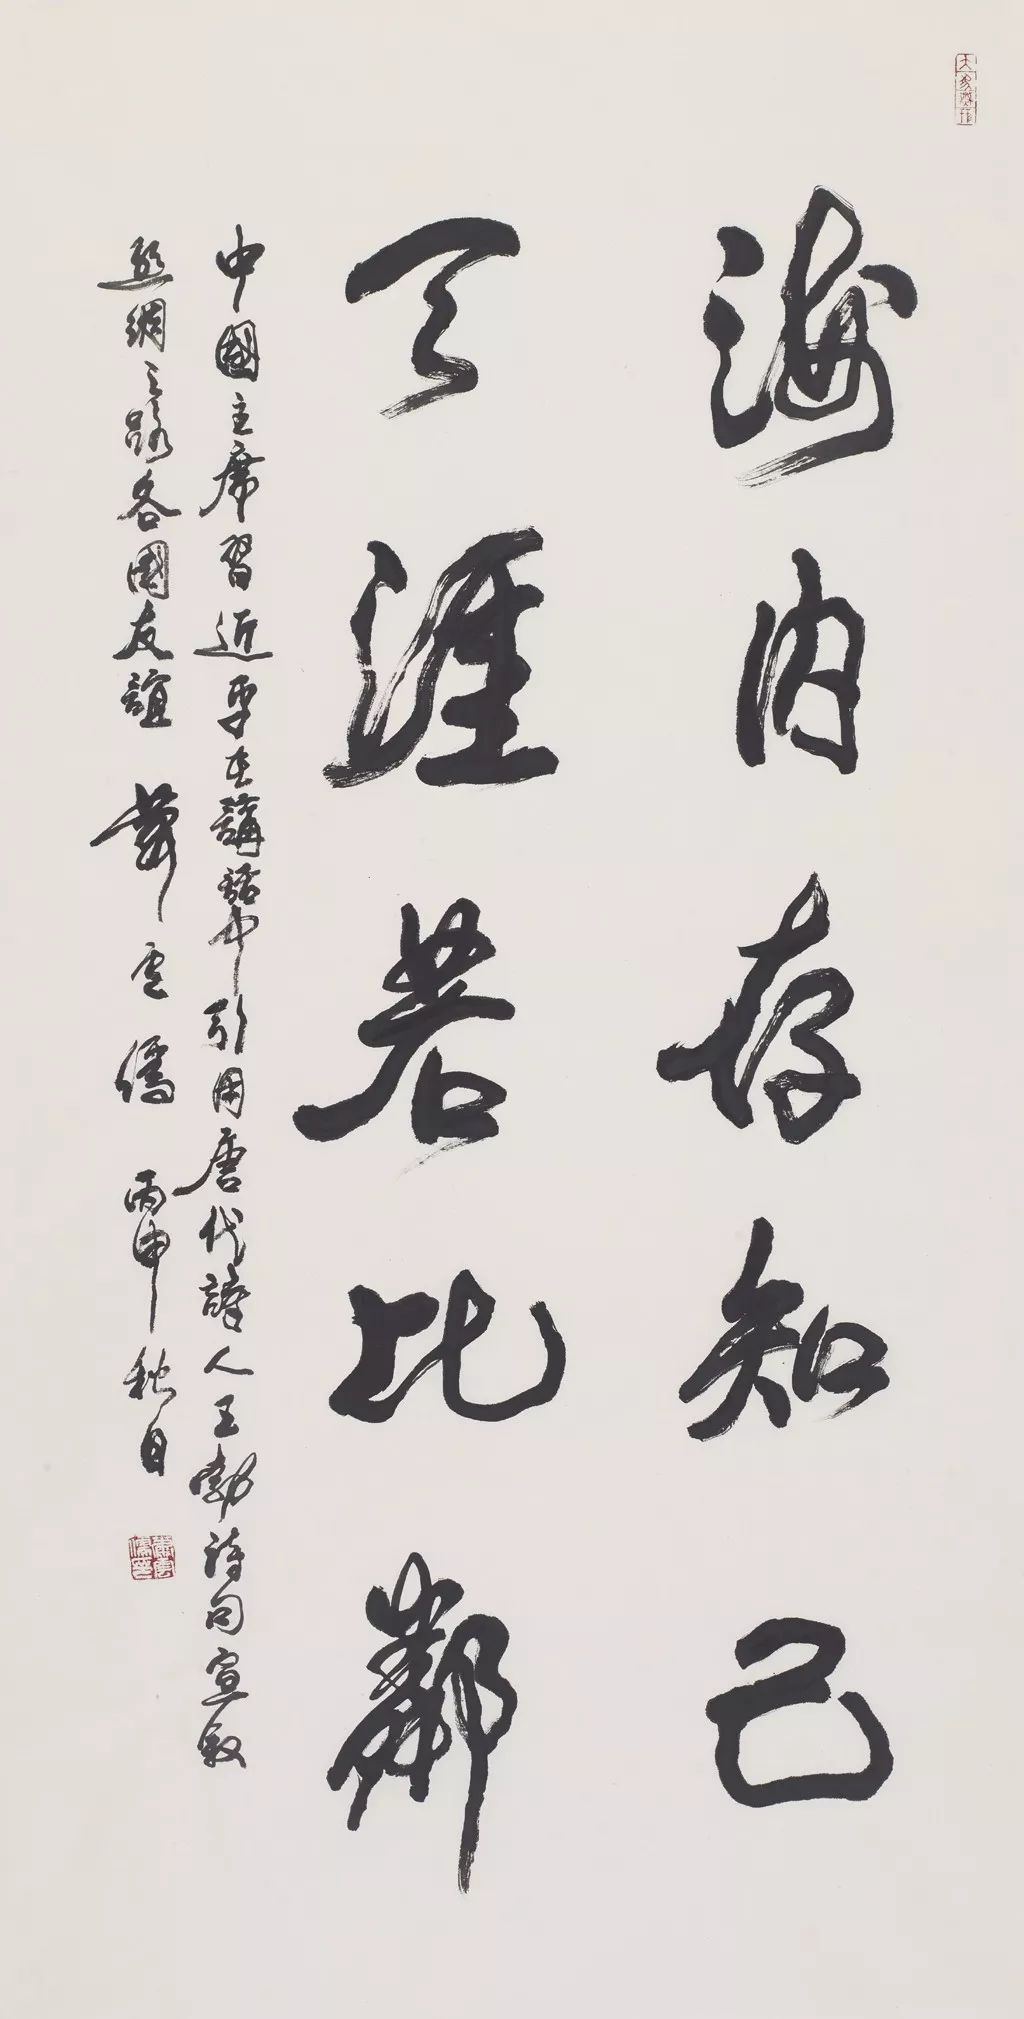 海内存知己
天涯若比鄰
中國主席習近平在講話中引用唐代詩人王勃詩句宣敘
絲綢之路各國友誼 蕭雲儒 丙申秋日
蕭雲儒印